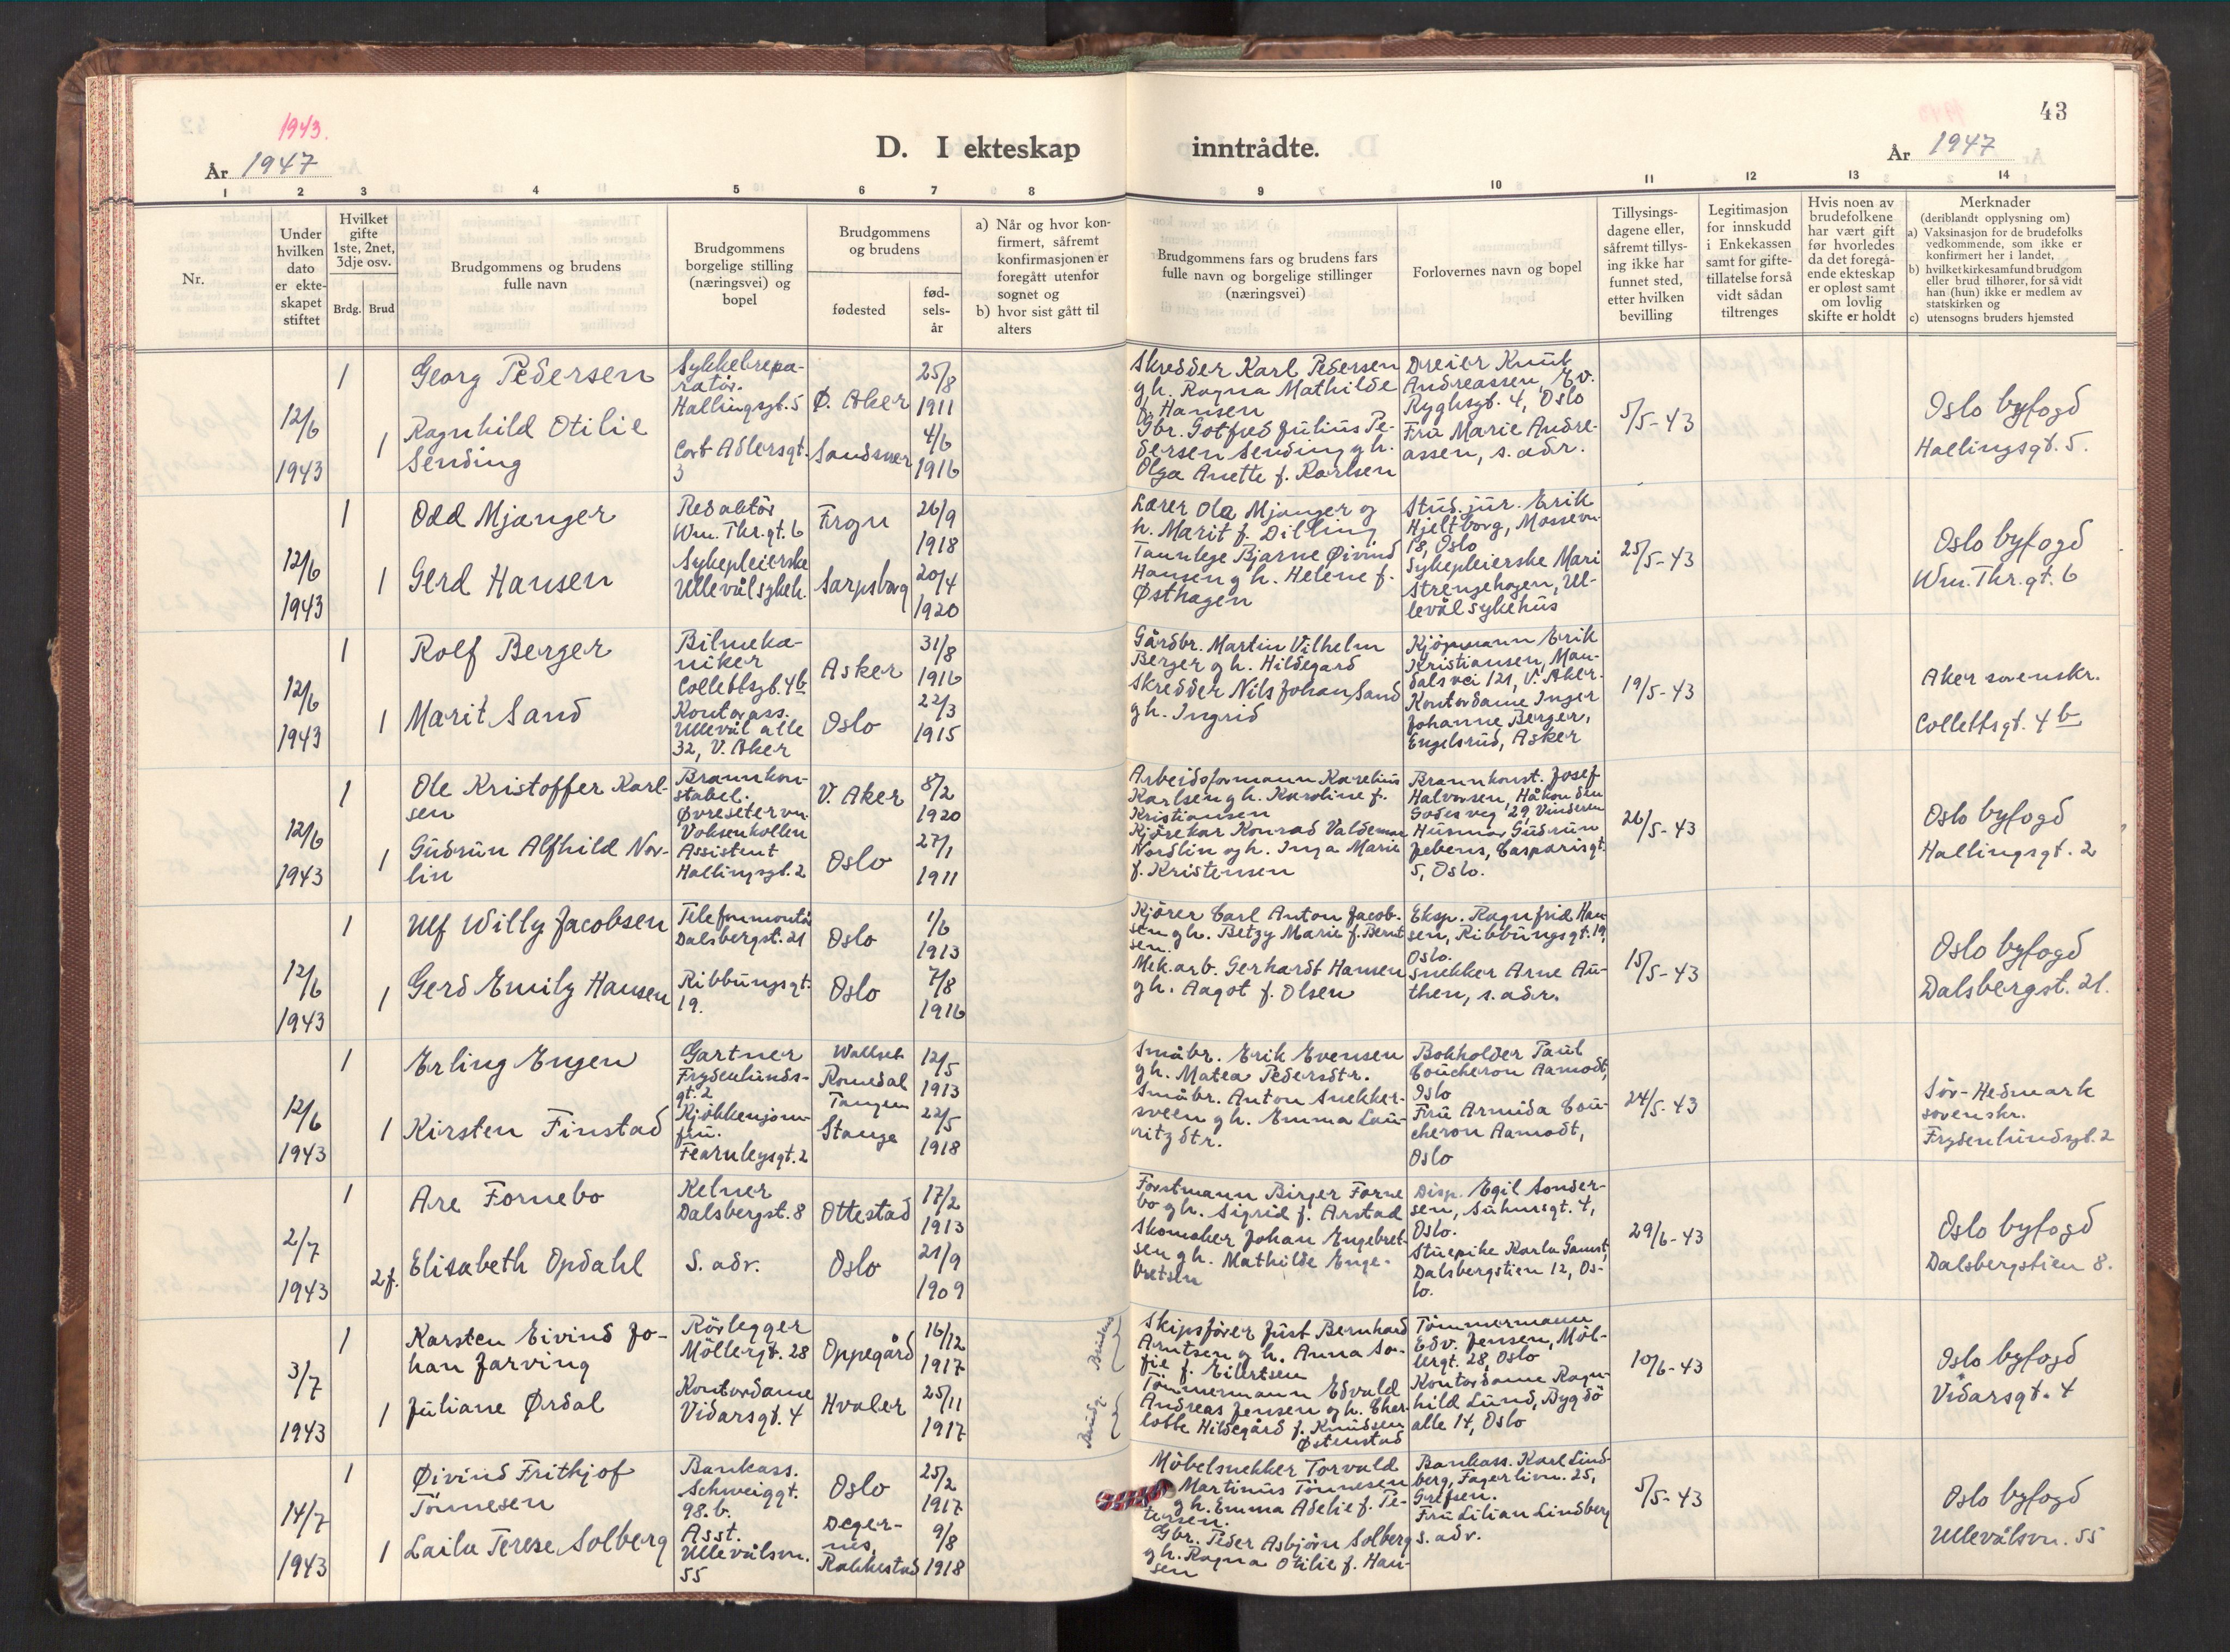 43
1943.
År 1947
D. I ekteskap inntrådte.
År 1947
1 2 3 4 5 6 7 8 9 10 11 12 13 14
Nr.
Under
hvilken
dato
er ekte-
skapet
stiftet
Hvilket
gifte
1ste, 2net,
3dje osv.
Brdg. Brud
Brudgommens og brudens
fulle navn
Brudgommens
borgelige stilling
(næringsvei) og
bopel
Brudgommens
og brudens
fødested
fød-
sels-
år
a) Når og hvor kon-
firmert, såfremt
konfirmasjonen er
foregått utenfor
sognet og
b) hvor sist gått til
alters
Brudgommens fars og brudens fars
fulle navn og borgelige stillinger
(næringsvei)
Forlovernes navn og bopel
Tillysings-
dagene eller,
såfremt tillys-
ing ikke har
funnet sted,
etter hvilken
bevilling
Legitimasjon
for innskudd
i Enkekassen
samt for gifte-
tillatelse for så
vidt sådan
tiltrenges
Hvis noen av
brudefolkene
har vært gift
før hvorledes
da det foregå-
ende ekteskap
er opløst samt
om lovlig
skifte er holdt
Merknader
(deriblandt opplysning om)
a) Vaksinasjon for de brudefolks
vedkommende, som ikke er
konfirmert her i landet,
b) hvilket kirkesamfund brudgom
eller brud tilhører, for så vidt
han (hun) ikke er medlem av
statskirken og
c) utensogns bruders hjemsted
12/6
1943
1
1
Georg Pedersen
Ragnhild Otilie
Sending
Sykkelrepa-
ratør.
Hallingsgt. 5
Cort Adlersgt.
3
Ø. Aker
Sandsvær
25/8
1911
4/6
1916
Skredder Karl Pedersen
og h. Ragna Mathilde
f. Hansen
Gbr. Gotfred Julius Pe-
dersen Sending og h.
Olga Anette f. Karlsen
Dreier Knut
Andreassen, Ev.
Ryghsgt. 4, Oslo
Fru Marie Andre-
assen, s. adr.
5/5-43
Oslo byfogd
Hallingsgt. 5.
12/6
1943
1
1
Odd Mjanger
Gerd Hansen
Redaktør
Wm. Thr. gt. 6
Sykepleierske
Ullevål sykeh.
Frogn
Sarpsborg
26/9
1918
20/4
1920
Lærer Ola Mjanger og
h. Marit f. Dilling
Tannlege Bjarne Øivind
Hansen og h. Helene f.
Østhagen
Stud. jur. Erik
Hjeltborg, Mossevn.
18, Oslo
Sykepleierske Mari
Strengehagen, Ul-
levål sykehus
25/5-43
Oslo byfogd
Wm. Thr. gt. 6
12/6
1943
1
1
Rolf Berger
Marit Sand
Bilmeka-
niker
Collettsgt. 4b
Kontorass.
Ullevål alle
32, V. Aker
Asker
Oslo
31/8
1916
22/3
1915
Gårdbr. Martin Vilhelm
Berger og h. Hildegard
Skredder Nils Johan Sand
og h. Ingrid
Kjöpmann Erik
Kristiansen, Man-
dals vei 121, V. Aker.
Kontordame Inger
Johanne Berger,
Engelsrud, Asker
19/5-43
Aker sorenskr.
Collettsgt. 4b
12/6
1943
1
1
Ole Kristoffer Karl-
sen
Gudrun Alfhild Nor-
lin
Brannkon-
stabel.
Øvreseter vn.
Voksenkollen
Assistent
Hallingsgt. 2
V. Aker
Oslo
8/2
1920
27/1
1911
Arbeidsformann Karelius
Karlsen og h. Karoline f.
Kristiansen
Kjörekar Konrad Valdemar
Nordlin og h. Inga Marie
f. Kristensen
Brannkonst. Josef
Halvorsen, Håkon den
Godes veg 29, Vinderen
Husmor Gudrun
Jebens, Casparisgt.
5, Oslo.
26/5-43
Oslo byfogd
Hallingsgt. 2
12/6
1943
1
1
Ulf Willy Jacobsen
Gerd Emily Hansen
Telefonmontör
Dalsbergst. 21
Ribbungsgt.
19.
Oslo
Oslo
1/6
1913
7/8
1916
Kjörer Carl Anton Jacob-
sen og h. Betzy Marie f. Bernt
sen.
Mek. arb. Gerhardt Hansen
og h. Aagot f. Olsen
Eksp. Ragnfrid Han-
sen, Ribbungsgt. 19,
Oslo.
Snekker Arne Au-
then, s. adr.
15/5-43
Oslo byfogd
Dalsbergst. 21.
12/6
1943
1
1
Erling Engen
Kirsten Finstad
Gartner
Frydenlunds-
gt. 2
Kjökkenjom-
fru.
Fearnleysgt. 2
Romedal
Tangen
Stange
12/5
1913
22/5
1918
Småbr. Erik Evensen
og h. Matea Pedersdtr.
Småbr. Anton Snekker-
sveen og h. Emma Lau-
ritzdtr.
Bokholder Paul
Coucheron Aamodt,
Oslo
Fru Armida Cou-
cheron Aamodt,
Oslo
24/5-43
Sör-Hedmark
sorenskr.
Frydenlundsgt. 2
2/7
1943
1
2 f.
Are Fornebo
Elisabeth Opdahl
Kelner
Dalsbergst. 8
S. adr.
Ottestad
Oslo
17/2
1913
21/9
1909
Forstmann Birger Forne
bo og h. Sigrid f. Arstad
Skomaker Johan Engebret-
sen og h. Mathilde Enge-
bretsen
Disp. Egil Sonder-
sen, Suhmsgt. 4,
Oslo.
Stuepike Karla Gamst,
Dalsbergstien 12, Os-
lo.
29/6-43
Oslo byfogd
Dalsbergstien 8.
3/7
1943
1
1
Karsten Eivind Jo-
han Jarving
Juliane Ørdal
Rörlegger
Möllergt. 28
Kontordame
Vidarsgt. 4
Oppegård
Hvaler
16/12
1917
25/11
1917
Brudens
Brudg.
Skipsförer Just Bernhard
Arntsen og h. Anna So-
fie f. Eilertsen
Tömmermann Edvald
Andreas Jensen og h. Char-
lotte Hildegård f. Knudsen
Østenstad
Tömmermann
Edv. Jensen, Möl-
lergt. 28, Oslo
Kontordame Ragn-
hild Lund, Bygdö
alle 14, Oslo
10/6-43
Oslo byfogd
Vidarsgt. 4
14/7
1943
1
1
Øivind Frithjof
Tönnesen
Laila Terese Solberg
Bankass.
Schweiggt.
98. b.
Asst.
Ullevålsvn.
55
Oslo
Deger-
nes,
Rakkestad
25/2
1917
9/8
1918
Möbelsnekker Torvald
Martinus Tönnesen
og h. Emma Adelie f. Pe-
tersen.
Gbr. Peder Asbjörn Solberg
og h. Ragna Otilie f. Han-
sen
Bankass. Karl Lind-
berg, Fagerlivn. 25,
Grefsen.
Fru Lilian Lindberg
s. adr.
5/5-43
Oslo byfogd
Ullevålsvn. 55